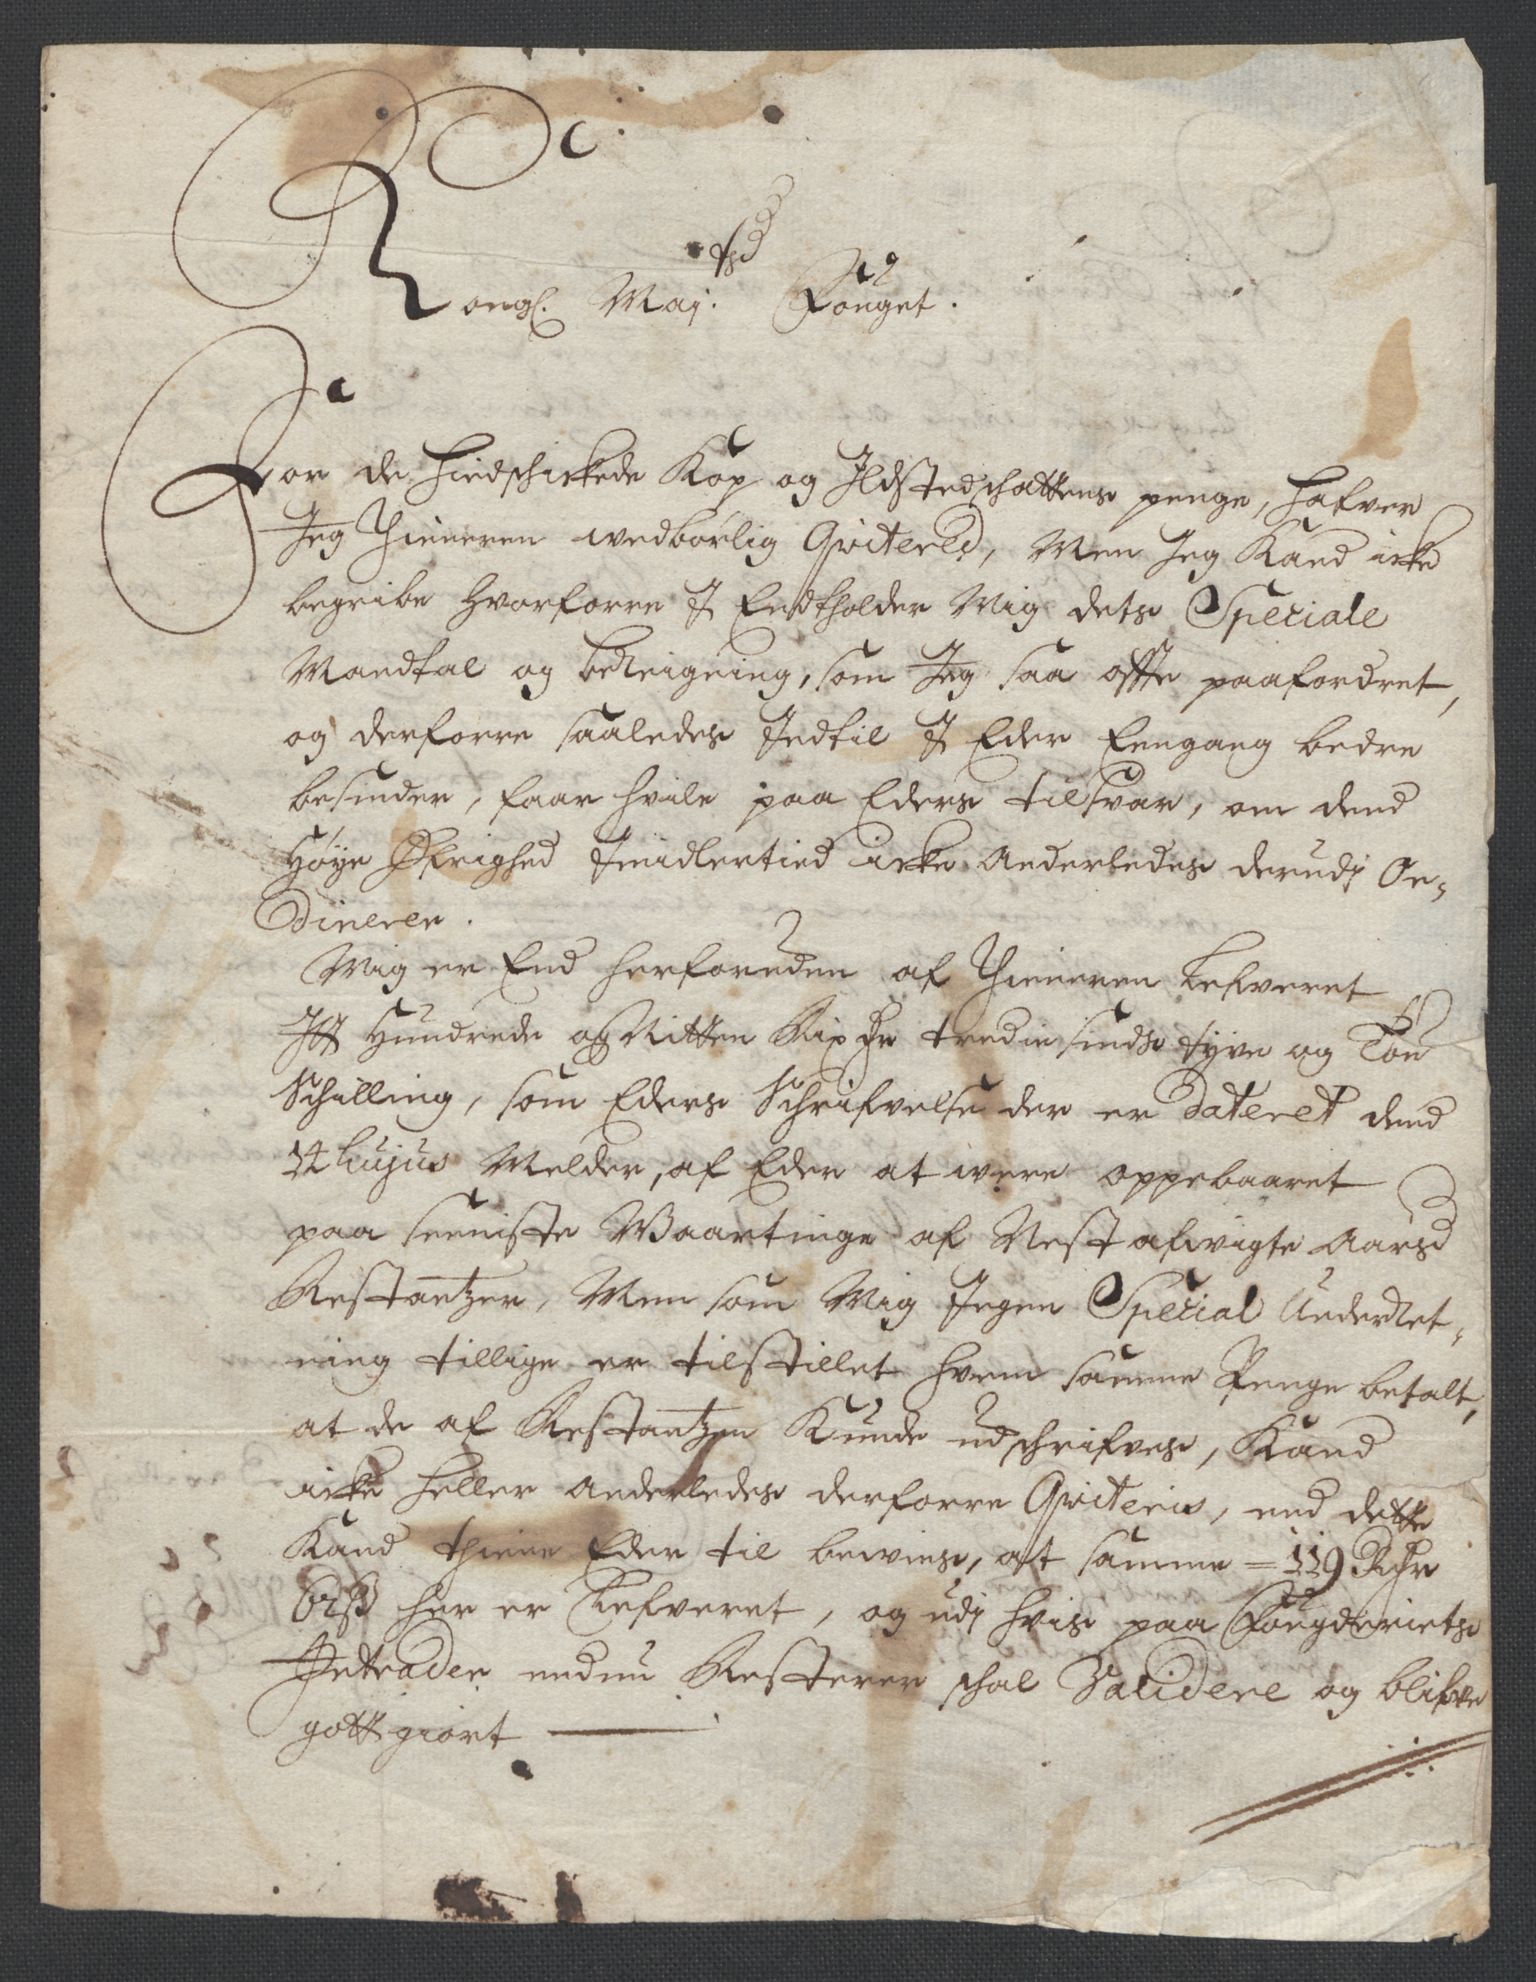 Kongl. Maj.tz Fouget.
For de hiidschickede Kop og Ildstedschattens penge, hafver
Jeg Thieneren wedbørlig Qviterit, Men Jeg Kand icke
begribe hvorforre I Endtholder Mig dets Speciale
Mandtal og beReigning, som Jeg saa offte paafordret,
og derforre saaledes Indtil I Eder Eengang bedre
besinder, faar hvile paa Eders tilsvar, om dend
Høye Øfrighed Imidlertid icke anderledes derudj Or-
dinerer.
Mig er End herforuden af Thieneren Lefveret
Itt Hundrede og Nitten Rixdr tredie sinds tyve og Tou
Schilling, som Eders Schrifvelse der er dateret dend
14 hujus Melder, af Eder at were oppebaaret
paa seeniste Waartinge af Nest afvigte Aars
Restantzer, Men som Mig Ingen Special Underret-
ning tillige er tilstillet hvem samme Penge betalt,
at de af Restantzen Kunde udschrifves, Kand
icke heller anderledes derforre Qviteris, end dette
Kand thiene Eder til beviis, at samme = 119 Rdr
62 ß her er Lefveret, og udj hvis paa Fougderiets
Intrader endnu Resterer schal Validere og blifve
gott giort